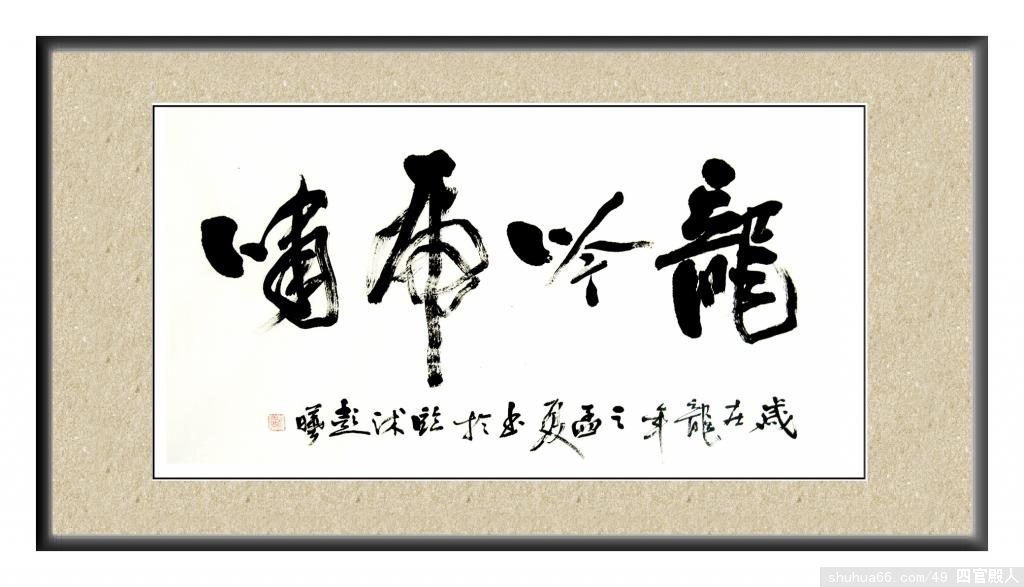 龍吟虎嘯
歲在龍年之孟夏書於臨沭彭曦
shuhua66.com/49 四官殿人